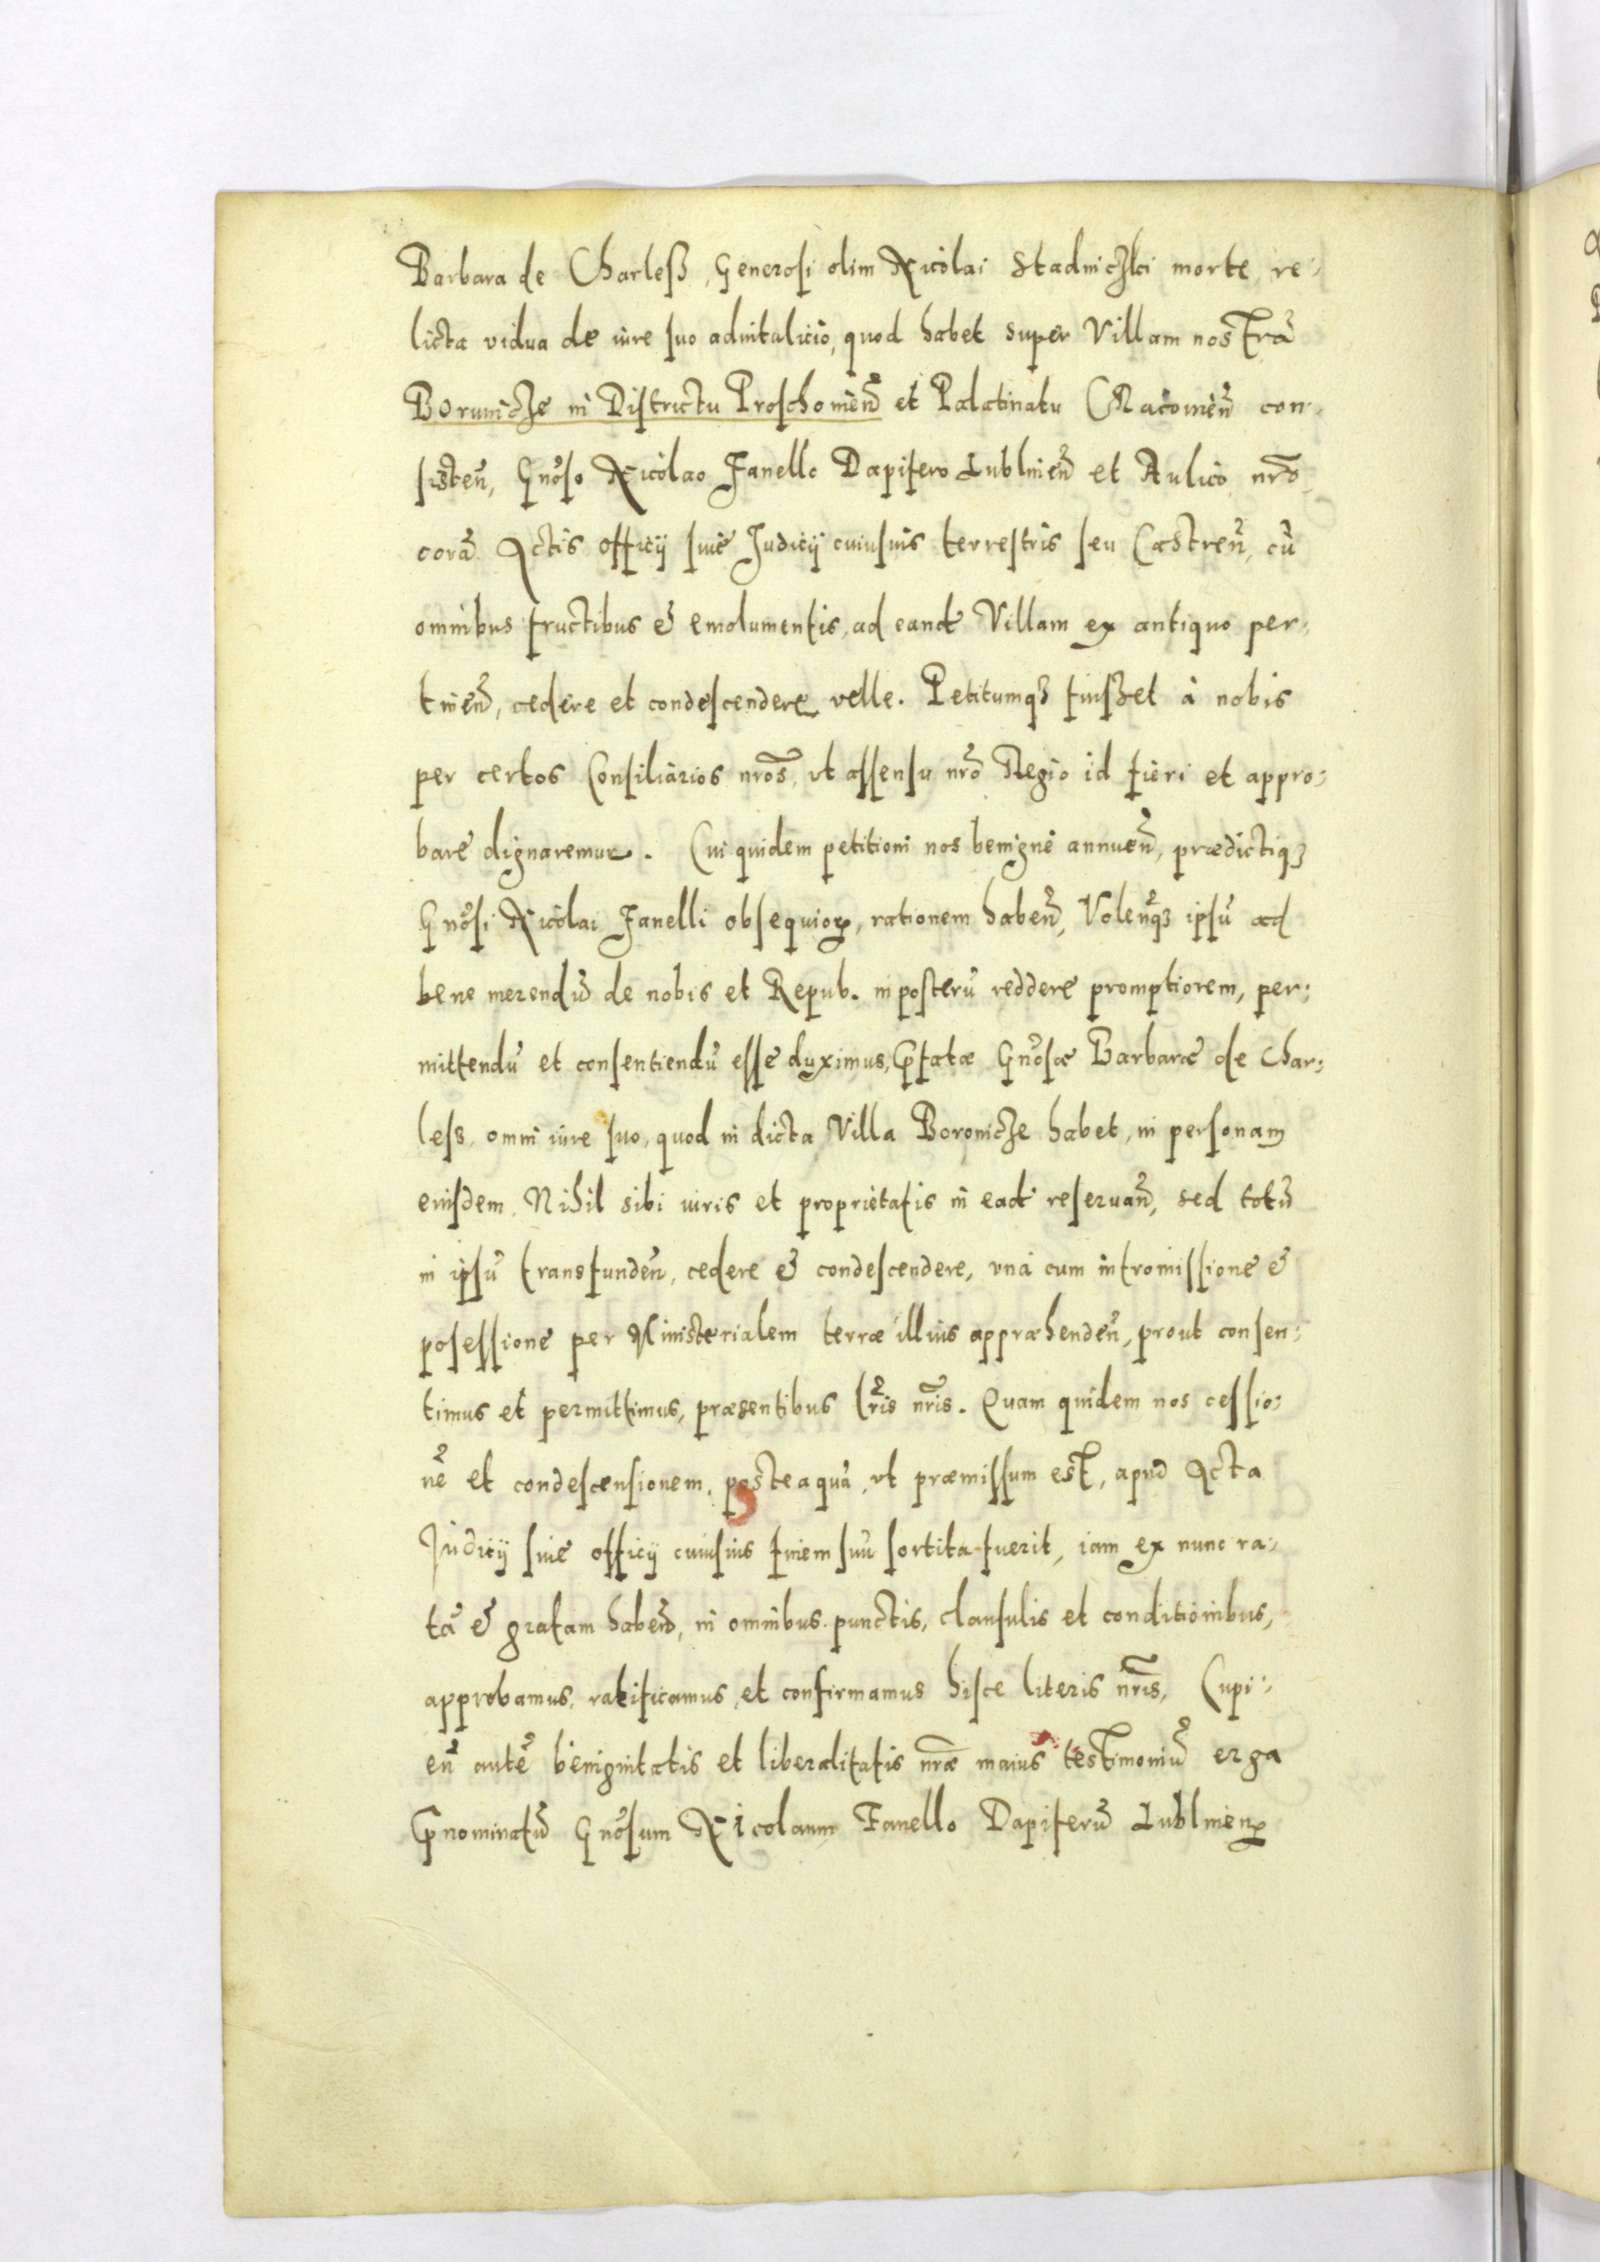 Barbara de Charleß, Generosi olim Nicolai Stadniczki morte re-
licta vidua de iure suo aduitalicio, quod habet super Villam nostrã
Borunicze in Districtu Proschouien̄ et Palatinatu Cracouien̄ con-
sisten̄, Gnoso Nicolao Fanello Dapifero Lublinen̄ et Aulico nr̄o,
corã Actis officij siue Judicij cuiusuis terrestris seu Castren̄, cũ
omnibus fructibus & emolumentis, ad eand Villam ex antiquo per-
tinen̄, cedere et condescendere velle. Petitumqȝ fuisset à nobis
per certos Consiliarios nr̄os, vt assensu nr̄o Regio id fieri et appro-
bare dignaremur. Cui quidem petitioni nos benignè annuen̄, prædictiqȝ
Gnosi Nicolai Fanelli obsequioꝝ, rationem haben̄, Volen̄qȝ ipsũ ad
bene merendũ de nobis et Repub. in posterũ reddere promptiorem, per-
mittendũ et consentiendũ esse duximus, Pfatæ Gnosæ Barbaræ de Char-
less, omni iure suo, quod in dicta Villa Boronicze habet, in personam
eiusdem. Nihil sibi iuris et proprietatis in ead reseruan̄, sed totũ
in ipsũ transfunden̄, cedere & condescendere, vnà cum intromissione &
posessione per Ministerialem terræ illius appræhenden̄, prout consen-
timus et permittimus, præsentibus lr̄is nr̄is. Quam quidem nos cessio-
nẽ et condescensionem, posteaquã, vt præmissum est, apud Acta
Judicij siue officij cuiusuis finem suũ sortita fuerit, iam ex nunc ra-
tã & gratam haben̄, in omnibus punctis, clausulis et conditionibus,
approbamus, ratificamus, et confirmamus hisce literis nr̄is, Cupi-
en̄ autẽ benignitatis et liberalitatis nr̄æ maius testimoniũ erga
Pnominatũ Gnosum Nicolaum Fanello Dapiferũ Lublinenꝝ